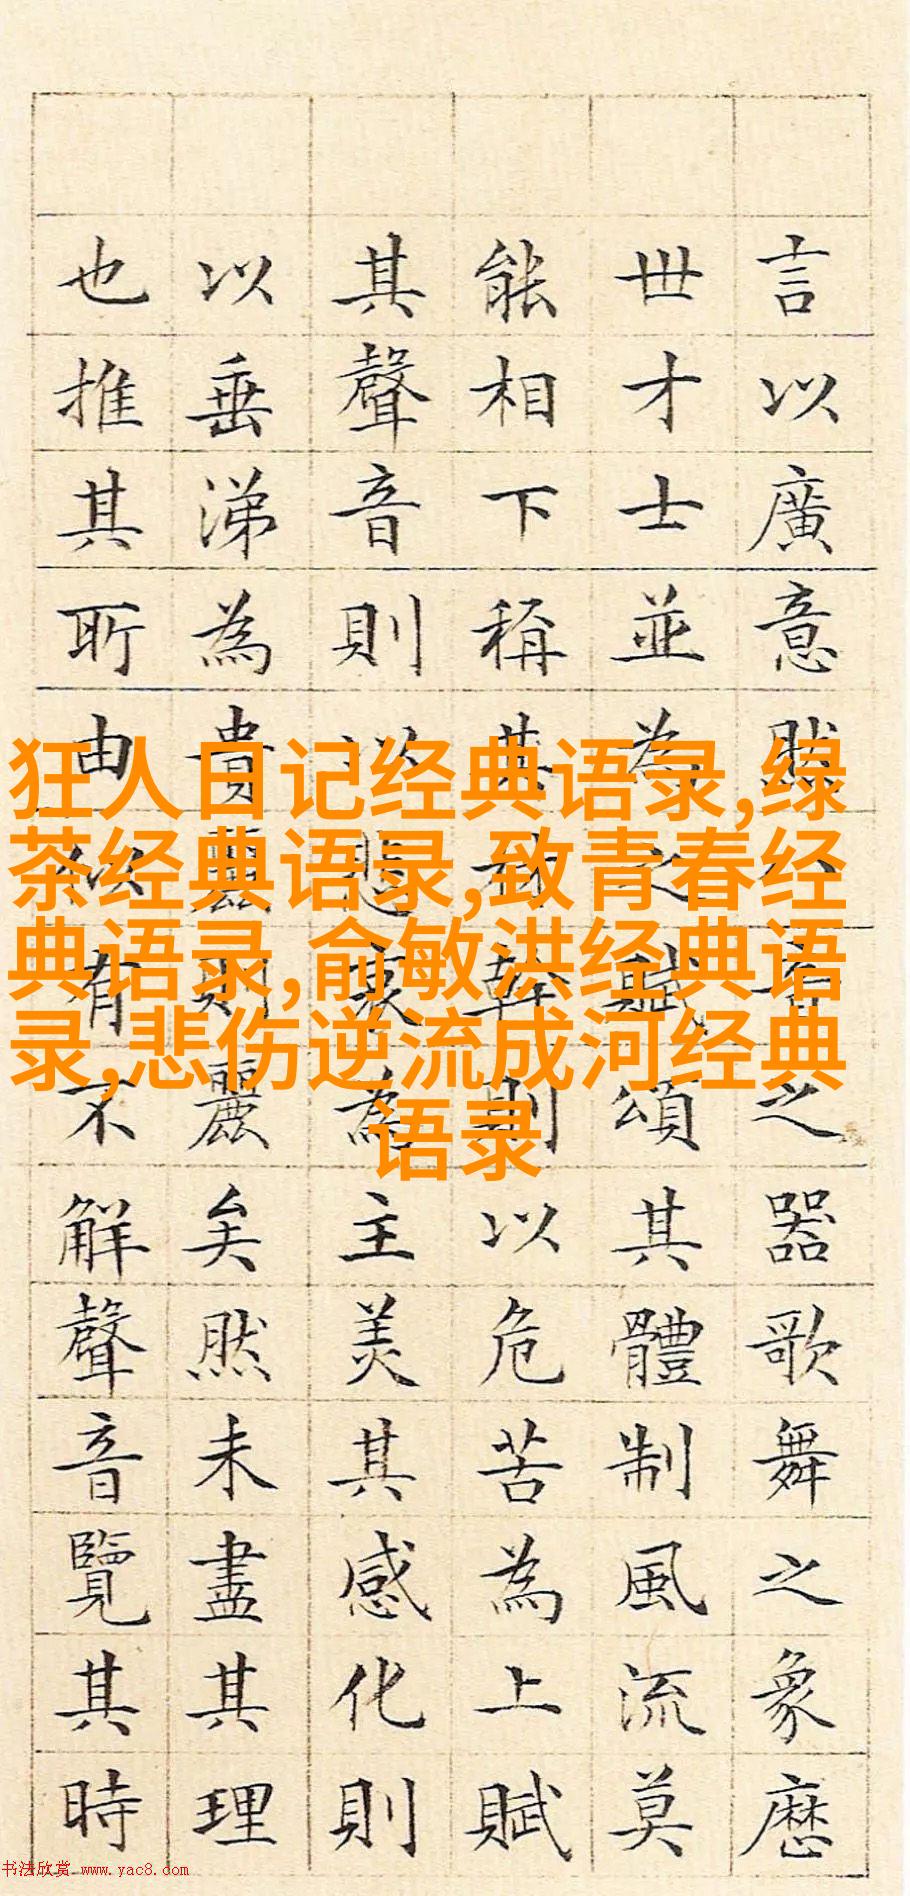 言以廣意然八音之器歌舞之象歷
世才士並為之賦頌其體制風流莫
能相下稱其材幹則以危苦為上賦
其聲音則以悲哀為主美其感化則
以垂涕為貴麗則麗矣然未盡其理
也推其所由似有不解聲音覽其時
狂人日记经典语录,绿
茶经典语录,致青春经
典语录,俞敏洪经典语
录,悲伤逆流成河经典
语录
书法欣赏 www.yac8.com